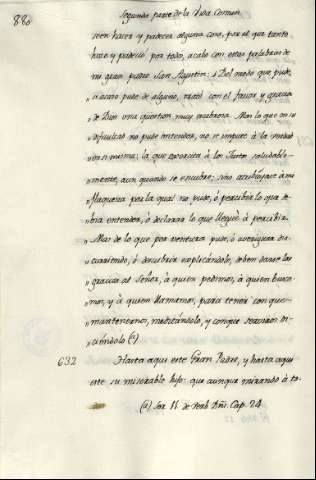 880
Segunda parte de la Vida Comun
seen hacer y padecer alguna cosa, por el que tanto
hizo y padeció por todos, acabo con estas palabras de
mi gran padre San Agustin: Del modo que pude,
si acaso pude de alguno, traté con el favor y gracia
de Dios una question muy Mas lo que en su
dificultad no pude entender, no se impute à la verdad
en si misma; la que exercita à los Justos saludable-
mente, aun quando se encubre; sino atribuyase à mi
flaqueza por la qual no pude, ó percibir lo que de-
bia entender, ó declarar lo que llegué à percibir.
Mas de lo que por ventura pude, ó averiguar dis-
curriendo, ó descubrir explicandolo, deben darse las
gracias al Señor, à quien pedimos, à quien busca-
mos, y à quien llamamos, para tener con que
mantenernos, meditandolo, y con que servirnos di-
ciendolo (a)
632 Hasta aqui este Gran Padre, y hasta aqui
este su miserable hijo: que aunque mirando à to-
(a) Ser. 11. de Verb. Dñi. Cap. 24